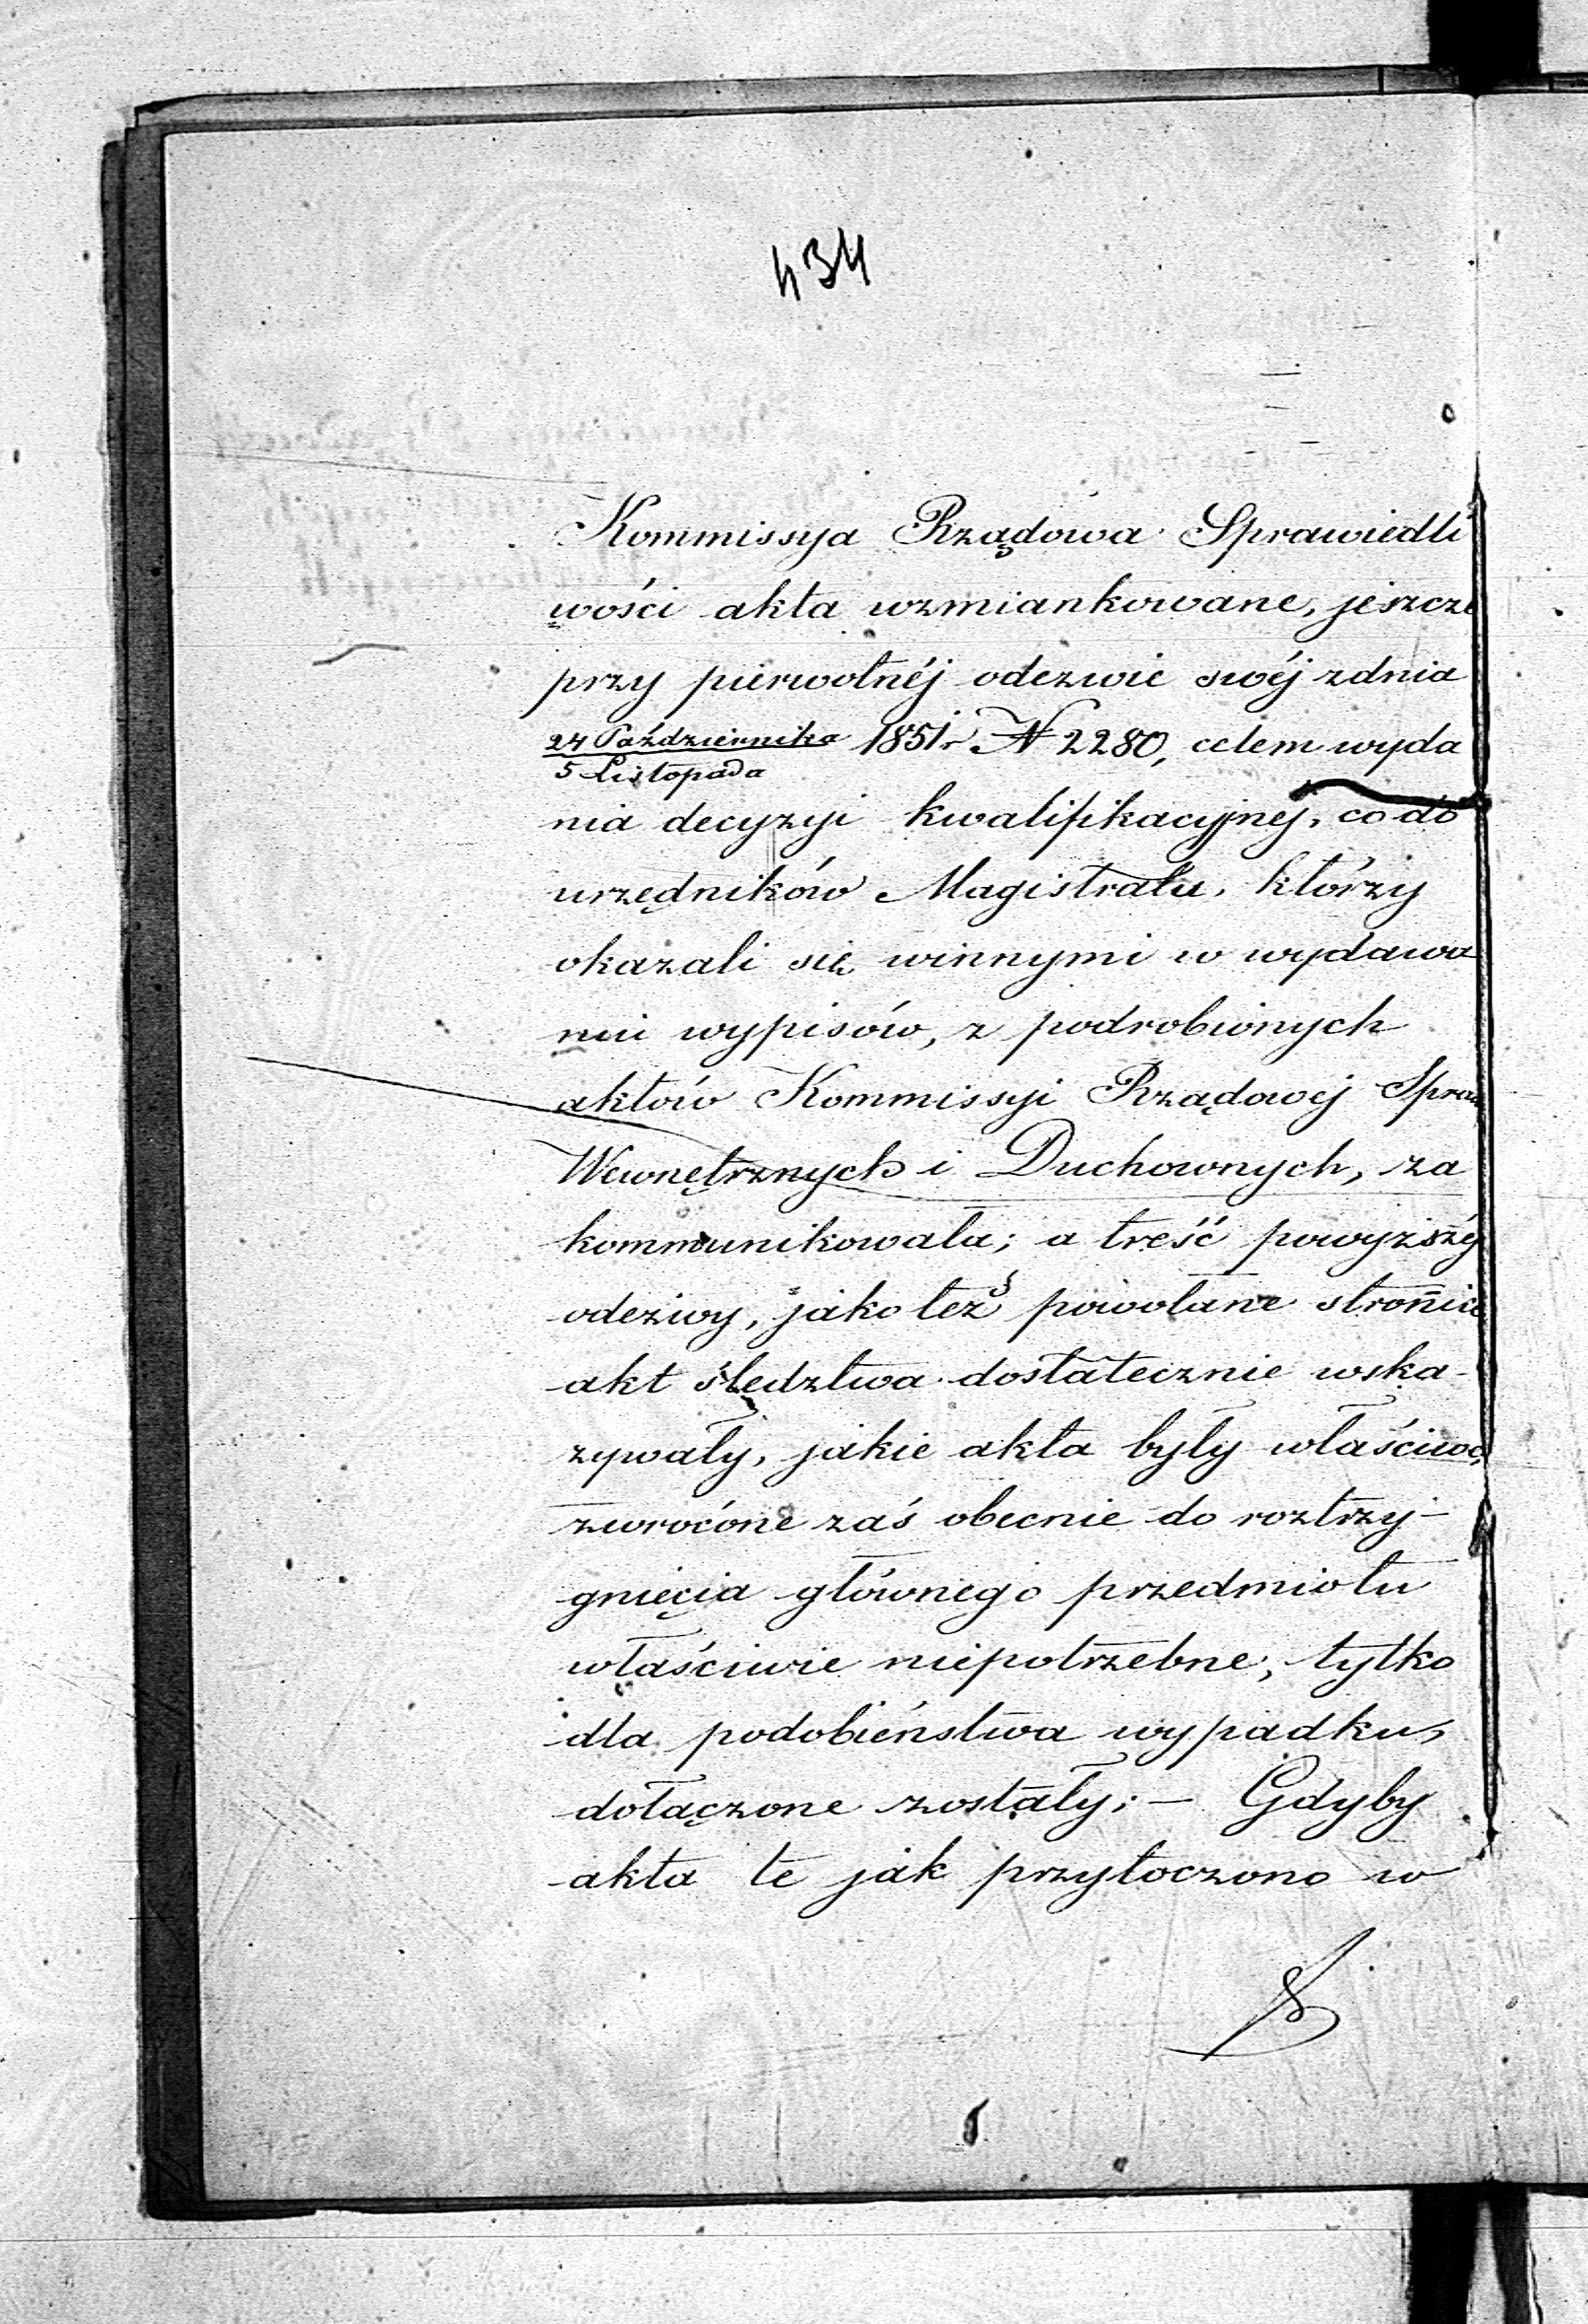 434
Kommissya Rządowa Sprawiedli
wości akta wzmiankowane, jeszcze
przy pierwotnéj odezwie swéj z dnia
24 Października 1851 r N 2280, celem wyda
5 Listopada
nia decyzyi kwalifikacyjnej, co do
urzędników Magistratu, którzy
okazali się winnymi w wydawa
niu wypisów, z podrobionych
aktów Kommissyi Rządowej Spraw
Wewnętrznych i Duchownych, za
kommunikowała; a treść powyższéj
odezwy, jako też powołane stronice
akt śledztwa dostatecznie wska-
zywały, jakie akta były właściwe,
zwrócone zaś obecnie do roztrzy-
gnięcia głównego przedmiotu
właściwie niepotrzebne, tylko
dla podobieństwa wypadku,
dołączone zostały; — Gdyby
akta te jak przytoczono w